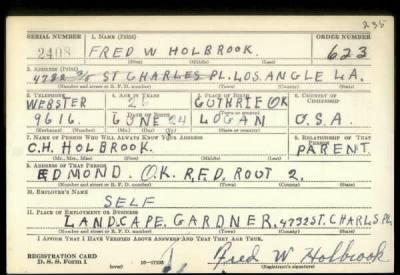 235
SERIAL NUMBER 1. NAME (Print) ORDER NUMBER
2408 FRED W HOLBROOK. 623
(First) (Middle) (Last)
2. ADDRESS (Print)
4732 3/5 ST CHARLES PL. LOS. ANGLE LA.
(Number and street or R. F. D. number) (Town) (County) (State)
3. TELEPHONE 4. AGE IN YEARS 5. PLACE OF BIRTH 6. COUNTRY OF CITIZENSHIP
WEBSTER 26 GUTHRIE OK
DATE OF BIRTH (Town or county)
9616. JUNE 24 LOGAN U.S.A.
(Exchange) (Number) (Mo.) (Day) (Yr.) (State or country)
7. NAME OF PERSON WHO WILL ALWAYS KNOW YOUR ADDRESS 8. RELATIONSHIP OF THAT PERSON
C.H. HOLBROOK. PARENT
(Mr., Mrs., Miss) (First) (Middle) (Last)
9. ADDRESS OF THAT PERSON
EDMOND. O.K. R.F.D. ROUT 2.
(Number and street or R. F. D. number) (Town) (County) (State)
10. EMPLOYER'S NAME
SELF
11. PLACE OF EMPLOYMENT OR BUSINESS
LANDCAPE. GARDNER. 4732 ST. CHARLS PL.
(Number and street or R. F. D. number) (Town) (County) (State)
I AFFIRM THAT I HAVE VERIFIED ABOVE ANSWERS AND THAT THEY ARE TRUE.
REGISTRATION CARD
D. S. S. Form 1 Fred W Holbrook
(Registrant's signature)